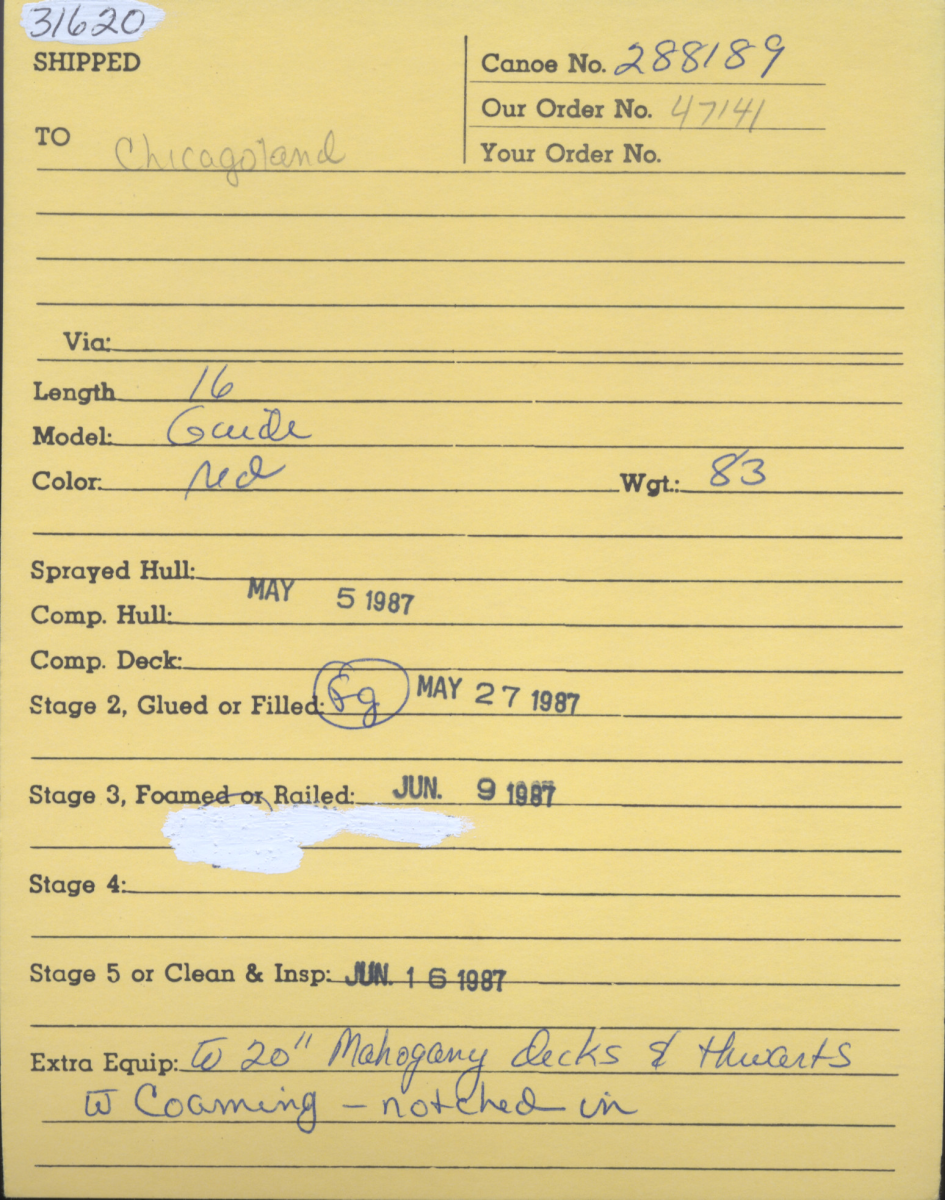 31620
SHIPPED
Canoe No. 288189
Our Order No. 47141
TO Chicagoland
Your Order No.
Via:
Length 16
Model: Guide
Color: red Wgt.: 83
Sprayed Hull:
MAY 5 1987
Comp. Hull:
Comp. Deck:
Stage 2, Glued or Filled: fg MAY 27 1987
Stage 3, Foamed or Railed: JUN. 9 1987
Stage 4:
Stage 5 or Clean & Insp: JUN. 16 1987
Extra Equip: w 20" Mahogany decks & thwarts
w Coaming - notched in